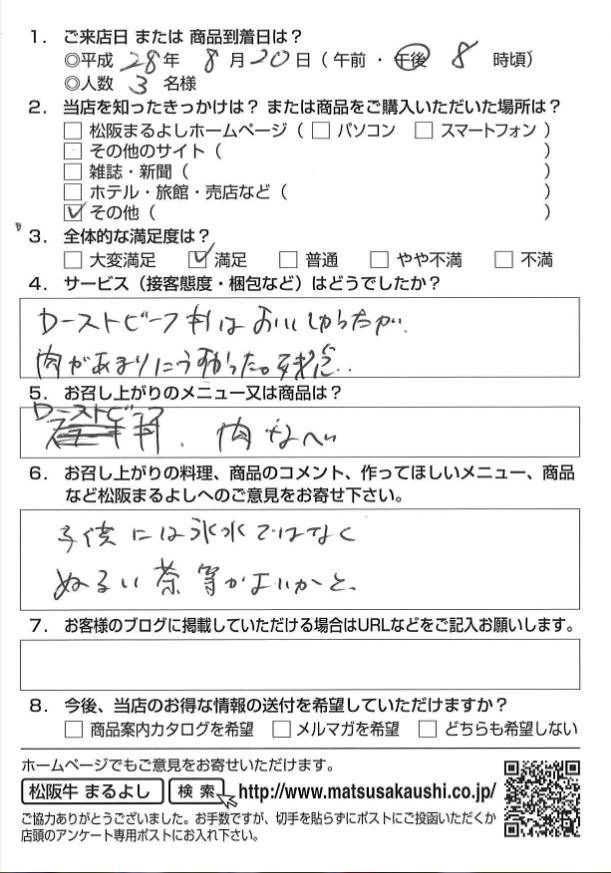 1. ご来店日 または 商品到着日は?
◎平成 28年 8月20日(午前・午後 8 時頃)
◎人数 3 名様
2. 当店を知ったきっかけは? または商品をご購入いただいた場所は?
□ 松阪まるよしホームページ(□ パソコン □ スマートフォン)
□ その他のサイト( )
□ 雑誌・新聞( )
□ ホテル・旅館・売店など( )
☑ その他( )
3. 全体的な満足度は?
□ 大変満足 ☑ 満足 □ 普通 □ やや不満 □ 不満
4. サービス(接客態度・梱包など)はどうでしたか?
ローストビーフ丼はおいしかったが、
肉があまりにうすかった。残念..
5. お召し上がりのメニュー又は商品は?
ローストビーフ
丼、肉なべ
6. お召し上がりの料理、商品のコメント、作ってほしいメニュー、商品
など松阪まるよしへのご意見をお寄せ下さい。
子供には氷水ではなく
ぬるい茶等がよいかと、
7. お客様のブログに掲載していただける場合はURLなどをご記入お願いします。
8. 今後、当店のお得な情報の送付を希望していただけますか?
□ 商品案内カタログを希望 □ メルマガを希望 □ どちらも希望しない
ホームページでもご意見をお寄せいただけます。
松阪牛 まるよし 検索 http://www.matsusakaushi.co.jp/
ご協力ありがとうございました。お手数ですが、切手を貼らずにポストにご投函いただくか
店頭のアンケート専用ポストにお入れ下さい。